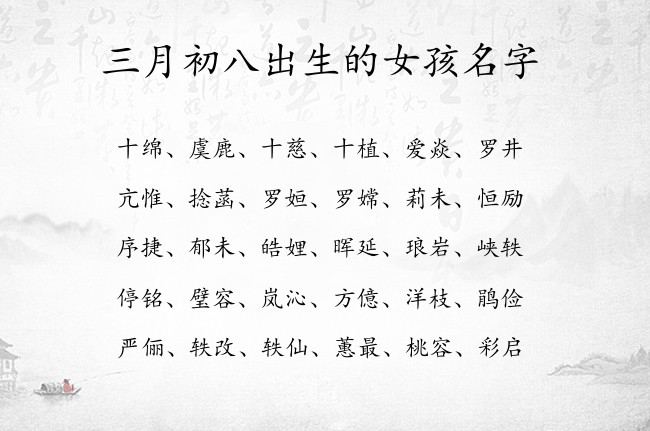 三月初八出生的女孩名字
十绵、虞鹿、十慈、十植、爱焱、罗井
亢惟、捻菡、罗姮、罗嫦、莉未、恒励
序捷、郁未、皓娌、晖延、琅岩、峡轶
停铭、璧容、岚沁、方億、洋枝、鹃俭
严俪、轶改、轶仙、蕙最、桃容、彩启